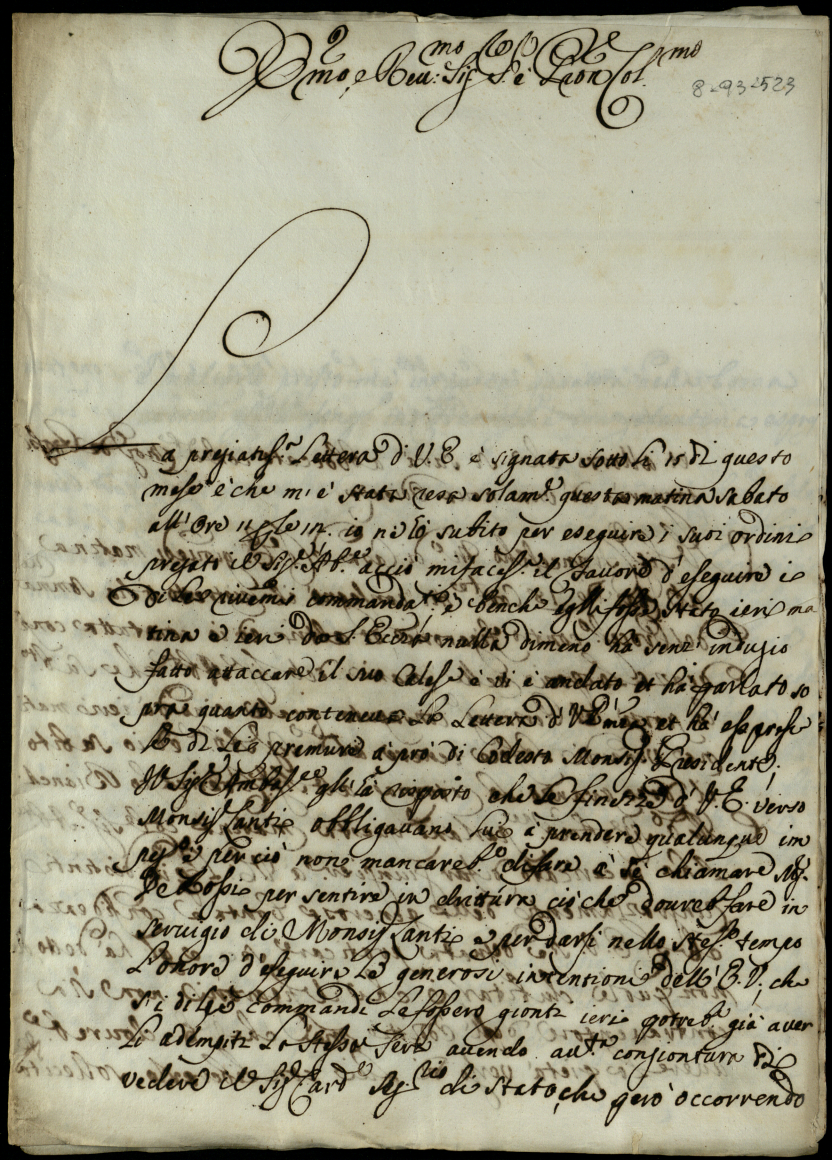 Em.mo e Rev.mo Sig.re S.e e Pron Col.mo
8-93-523
La pregiatiss.a Lettera d' V. E. è signata sotto li 15 di questo
mese è che mi è stata resa solam.te questa matina sabato
all' Ore 11 io ne subito per eseguire i suoi ordini
pregato il Sig.r Ab.e acciò mi facess.e il favore d'eseguire i
di Lei commanda.ti è benche egli fosse stato ieri ma
tina e ieri da S. Ecc.za nulla dimeno ha senz' indugio
fatto attaccare il suo Calesse è vi è andato et hà parlato so
pra quanto conteneva La Lettera d' V. E. et hà espresse
le di Lei premure à prò di Codesto Monsig.r Presidente.
Il Sig.r Ambas.re gli hà risposto che le finezze d' V. E. verso
Monsig.r Lanti obbligavano Lui à prendere qualunque im
peg.o è per ciò non mancareb.e di fare à sè chiamare Mg.r
De Rossi per sentire in drittura ciò che dovreb.e fare in
servigio di Monsig.r Lanti e per darsi nello stess.o tempo
L'onore d'eseguire Le generosi intentioni dell' E. V., che
s' i di Lei Commandi Le fossero gionti ieri potreb.e già aver
Li adempiti La stessa sera avendo au.ta congiontura di
vedere il Sig.r Card.e Seg.rio di Stato, che però occorrendo